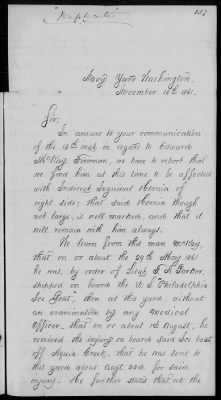 "Duplicate"
137
Navy Yard Washington
November 18th 1861.
Sir,
In answer to your communication
of the 13th inst in regard to Edward
McKoy Fireman, we have to report that
we find him at this time to be affected
with Indirect Inguinal Hernia of
right side; that said hernia though
not large, is well marked, and that it
will remain with him always.
We learn from this man McKoy,
that on or about the 29th May 1861
he was, by order of Lieut. F. A. Parker,
shipped on board the U. S. "Philadelphia
Ice Boat", then at this yard, without
an examination by any medical
Officer, that on or about 1st August, he
received the injury on board said Ice boat
off Aquia Creek, that he was sent to
this yard about Augt for said
injury. He further states that at the